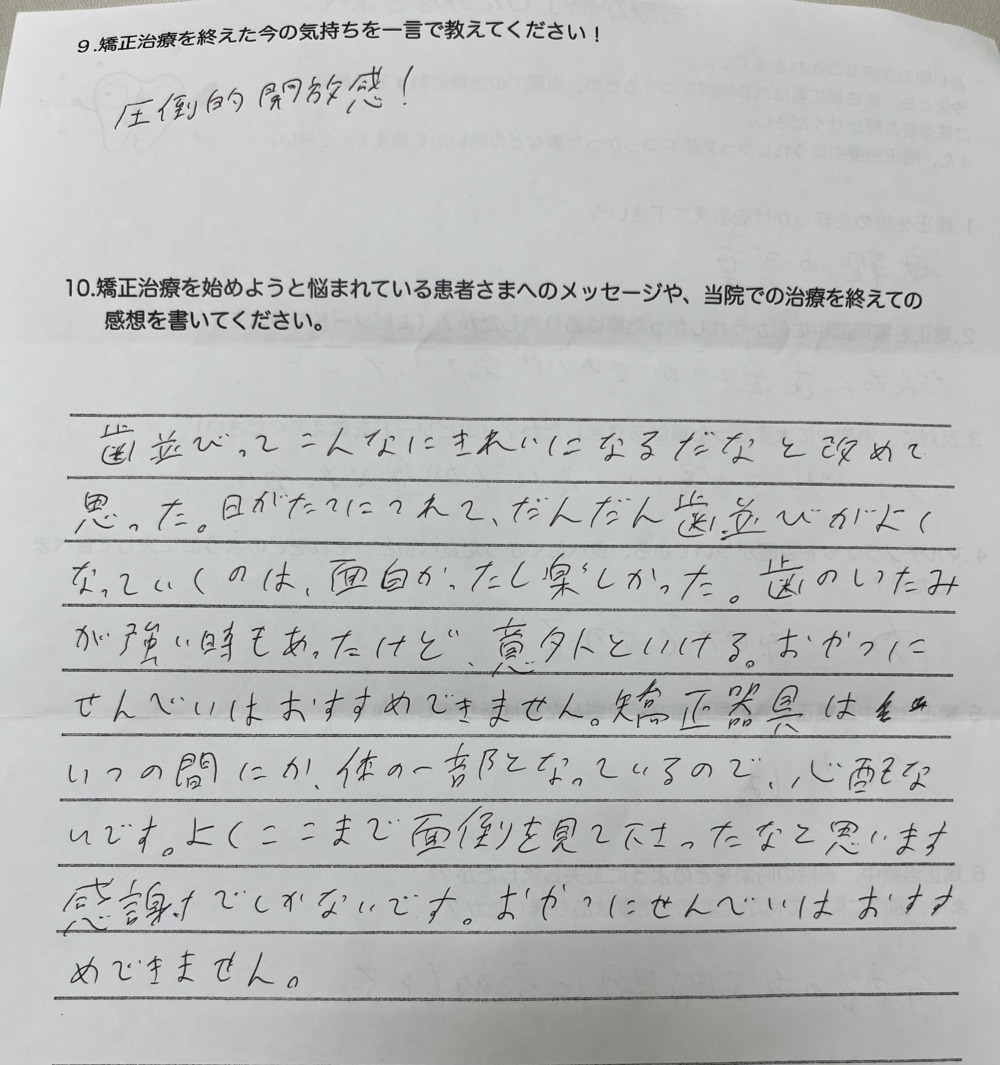 9.矯正治療を終えた今の気持ちを一言で教えてください！
圧倒的開放感！
10.矯正治療を始めようと悩まれている患者さまへのメッセージや、当院での治療を終えての
感想を書いてください。
歯並びってこんなにきれいになるだなと改めて
思った。日がたつにつれて、だんだん歯並びがよく
なっていくのは、面白かったし楽しかった。歯のいたみ
が強い時もあったけど、意外といける。おやつに
せんべいはおすすめできません。矯正器具は
いつの間にか、体の一部となっているので、心配な
いです。よくここまで面倒を見て下さったなと思います
感謝でしかないです。おやつにせんべいはおすす
めできません。